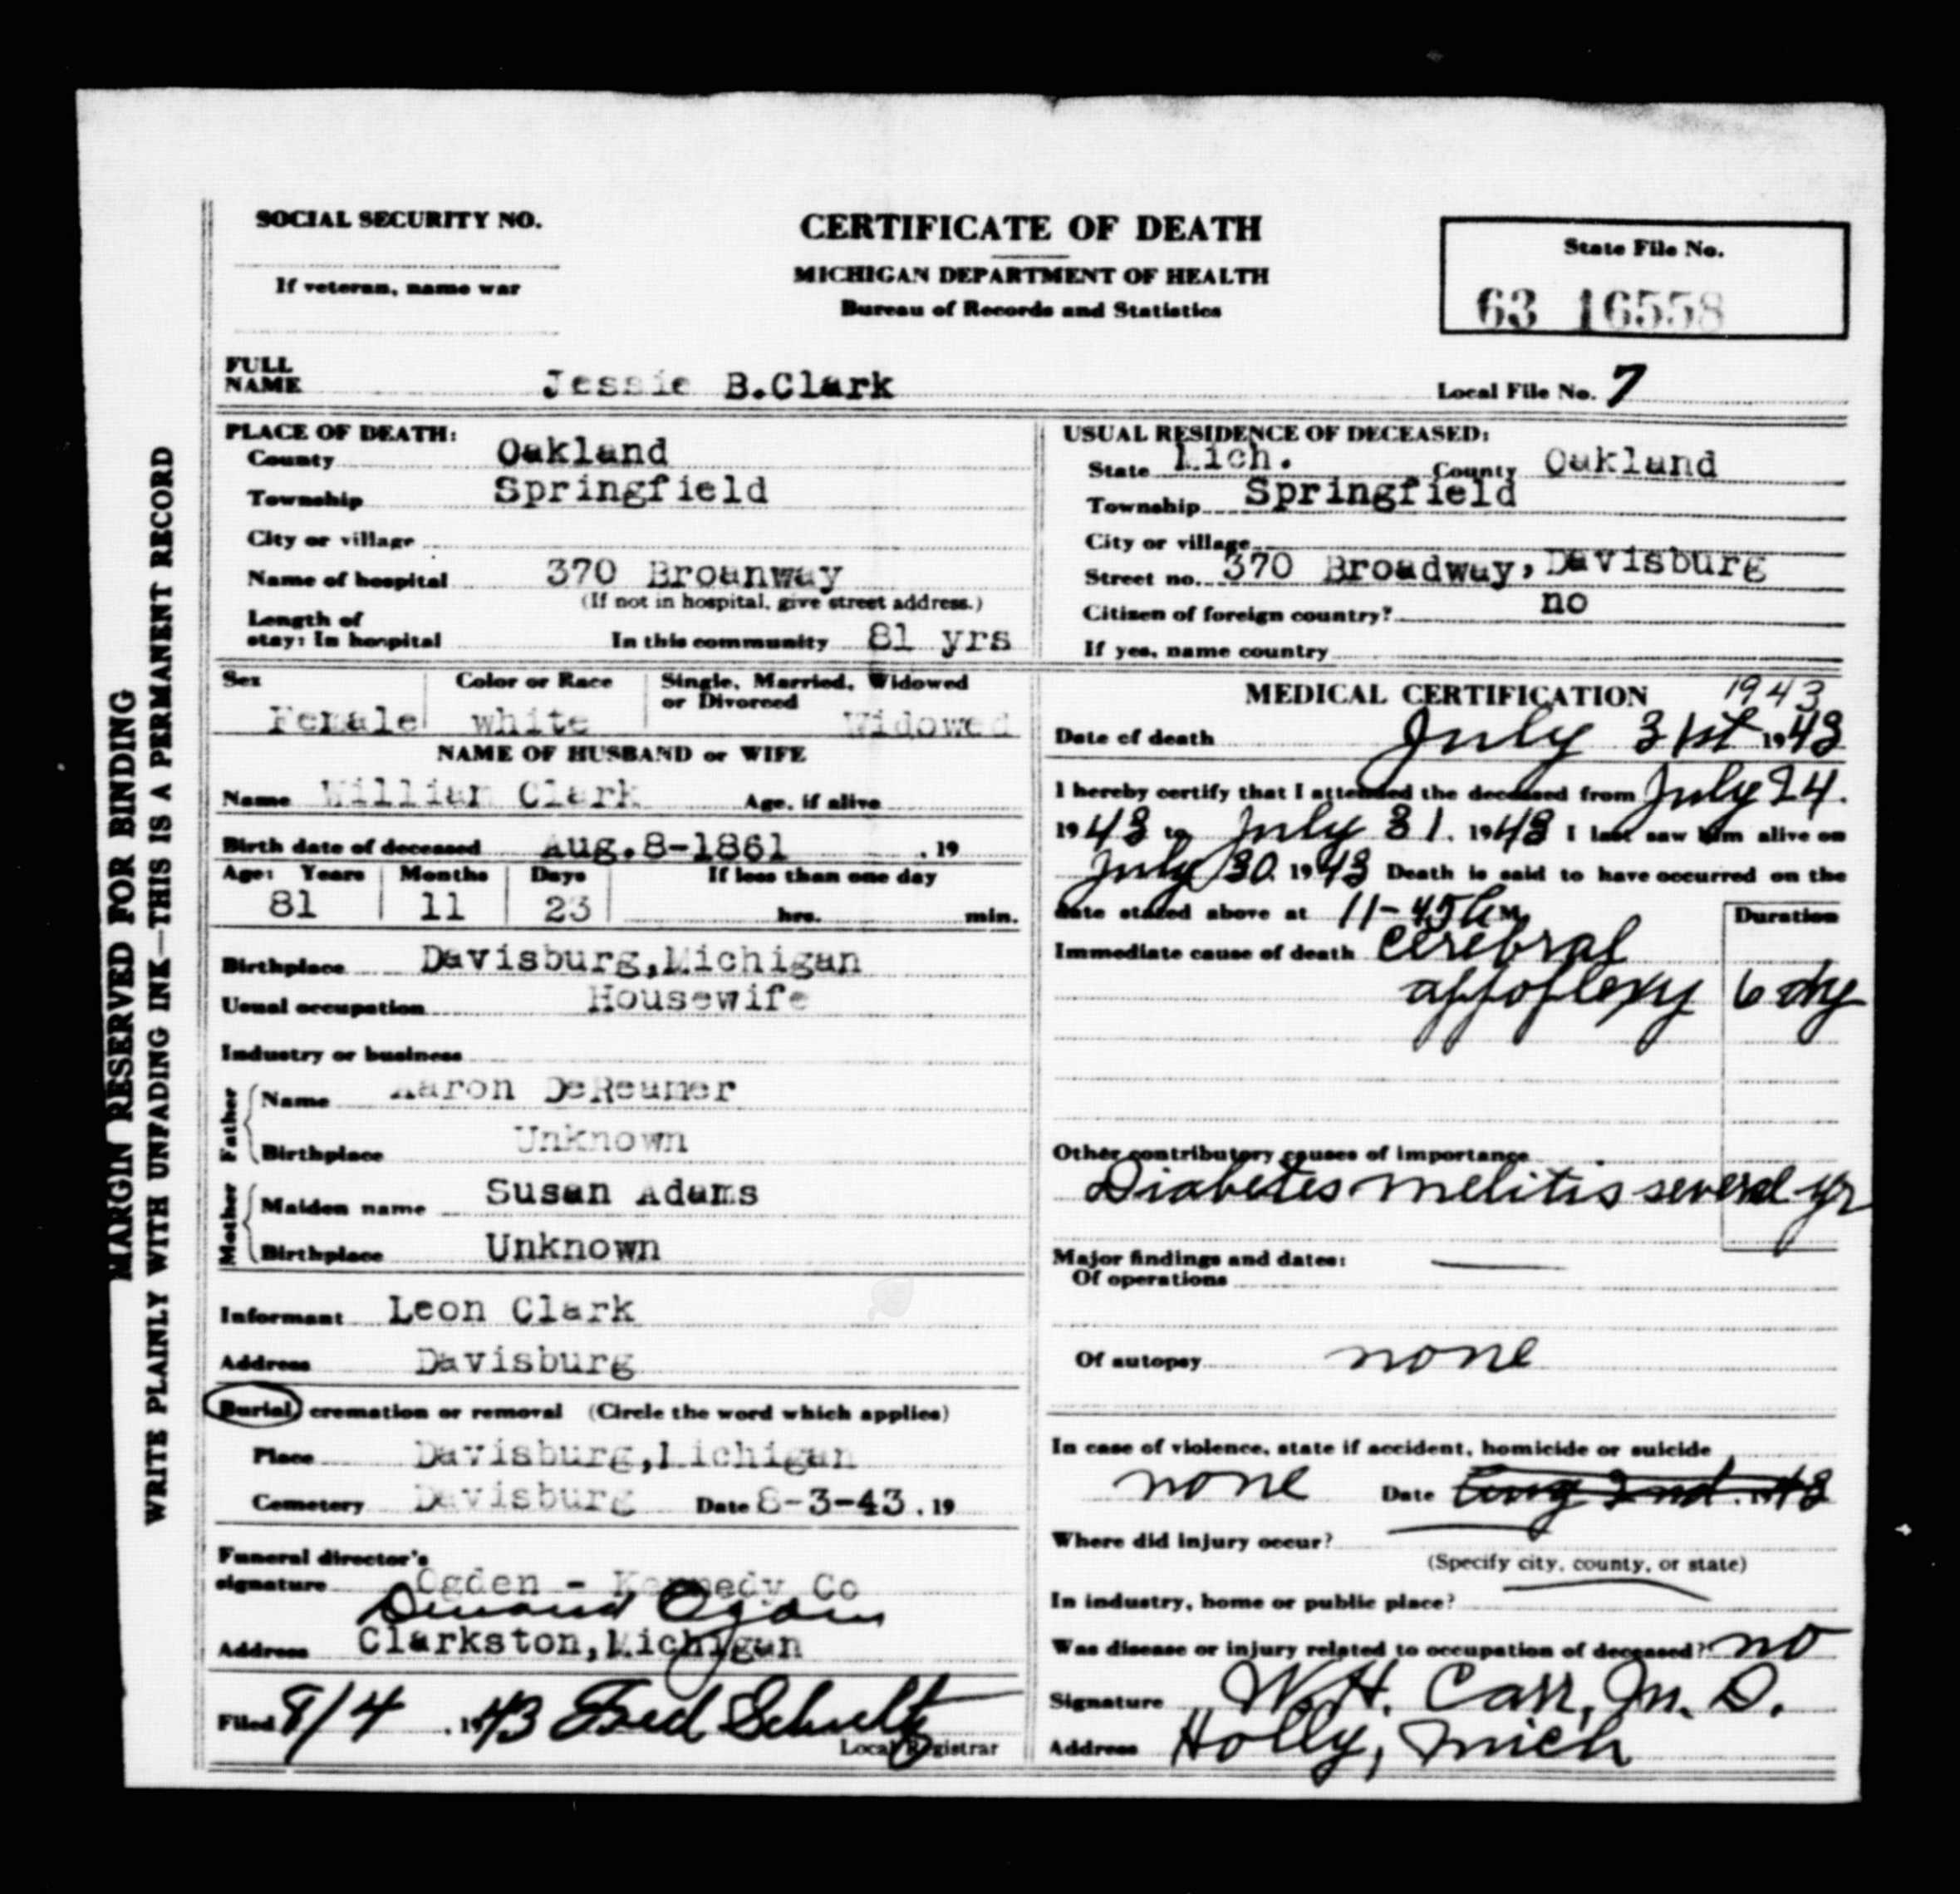 MARGIN RESERVED FOR BINDING
WRITE PLAINLY WITH UNFADING INK—THIS IS A PERMANENT RECORD
SOCIAL SECURITY NO.
If veteran, name war
CERTIFICATE OF DEATH
MICHIGAN DEPARTMENT OF HEALTH
Bureau of Records and Statistics
State File No.
63 16558
FULL NAME Jessie B.Clark
Local File No. 7
PLACE OF DEATH:
County Oakland
Township Springfield
City or village
Name of hospital 370 Broanway
(If not in hospital, give street address.)
Length of
stay: In hospital In this community 81 yrs
USUAL RESIDENCE OF DECEASED:
State Mich. County Oakland
Township Springfield
City or village
Street no. 370 Broadway, Davisburg
Citizen of foreign country? no
If yes, name country
Sex Female
Color or Race white
Single, Married, Widowed or Divorced Widowed
NAME OF HUSBAND or WIFE
Name William Clark Age, if alive
Birth date of deceased Aug.8-1861 , 19
Age: Years Months Days If less than one day
81 11 23 hrs. min.
Birthplace Davisburg,Michigan
Usual occupation Housewife
Industry or business
Father
Name Aaron DeReamer
Birthplace Unknown
Mother
Maiden name Susan Adams
Birthplace Unknown
Informant Leon Clark
Address Davisburg
Burial, cremation or removal (Circle the word which applies)
Place Davisburg,Michigan
Cemetery Davisburg Date 8-3-43 , 19
Funeral director's
signature Ogden - Kennedy Co
Ogden
Address Clarkston,Michigan
Filed 8/4 , 1943 Fred Schultz
Local Registrar
MEDICAL CERTIFICATION 1943
Date of death July 31st 1943
I hereby certify that I attended the deceased from July 24.
1943 to July 31. 1943 I last saw him alive on
July 30. 1943 Death is said to have occurred on the
date stated above at 11-45 M
Duration
Immediate cause of death cerebral
appoplexy 6 dy
Other contributory causes of importance
Diabetes melitis several yr
Major findings and dates:
Of operations
Of autopsy none
In case of violence, state if accident, homicide or suicide
none Date Aug 2nd. 1943
Where did injury occur?
(Specify city, county, or state)
In industry, home or public place?
Was disease or injury related to occupation of deceased? no
Signature W.H. Carr, M. D.
Address Holly, Mich